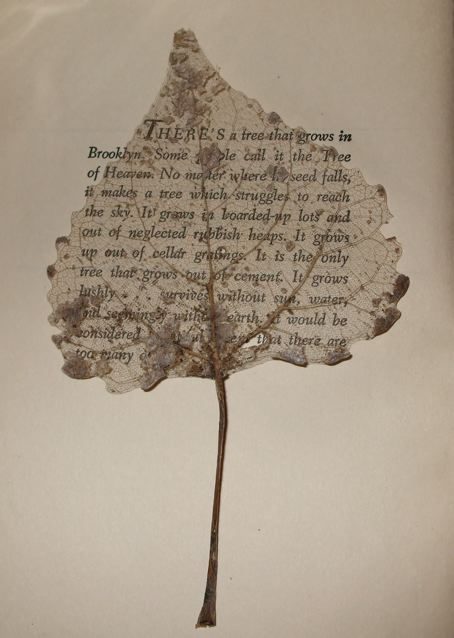 THERE'S a tree that grows in
Brooklyn. Some people call it the Tree
of Heaven. No matter where its seed falls,
it makes a tree which struggles to reach
the sky. It grows in boarded-up lots and
out of neglected rubbish heaps. It grows
up out of cellar gratings. It is the only
tree that grows out of cement. It grows
lushly survives without sun, water,
and seemingly without earth. It would be
considered that there are
too many